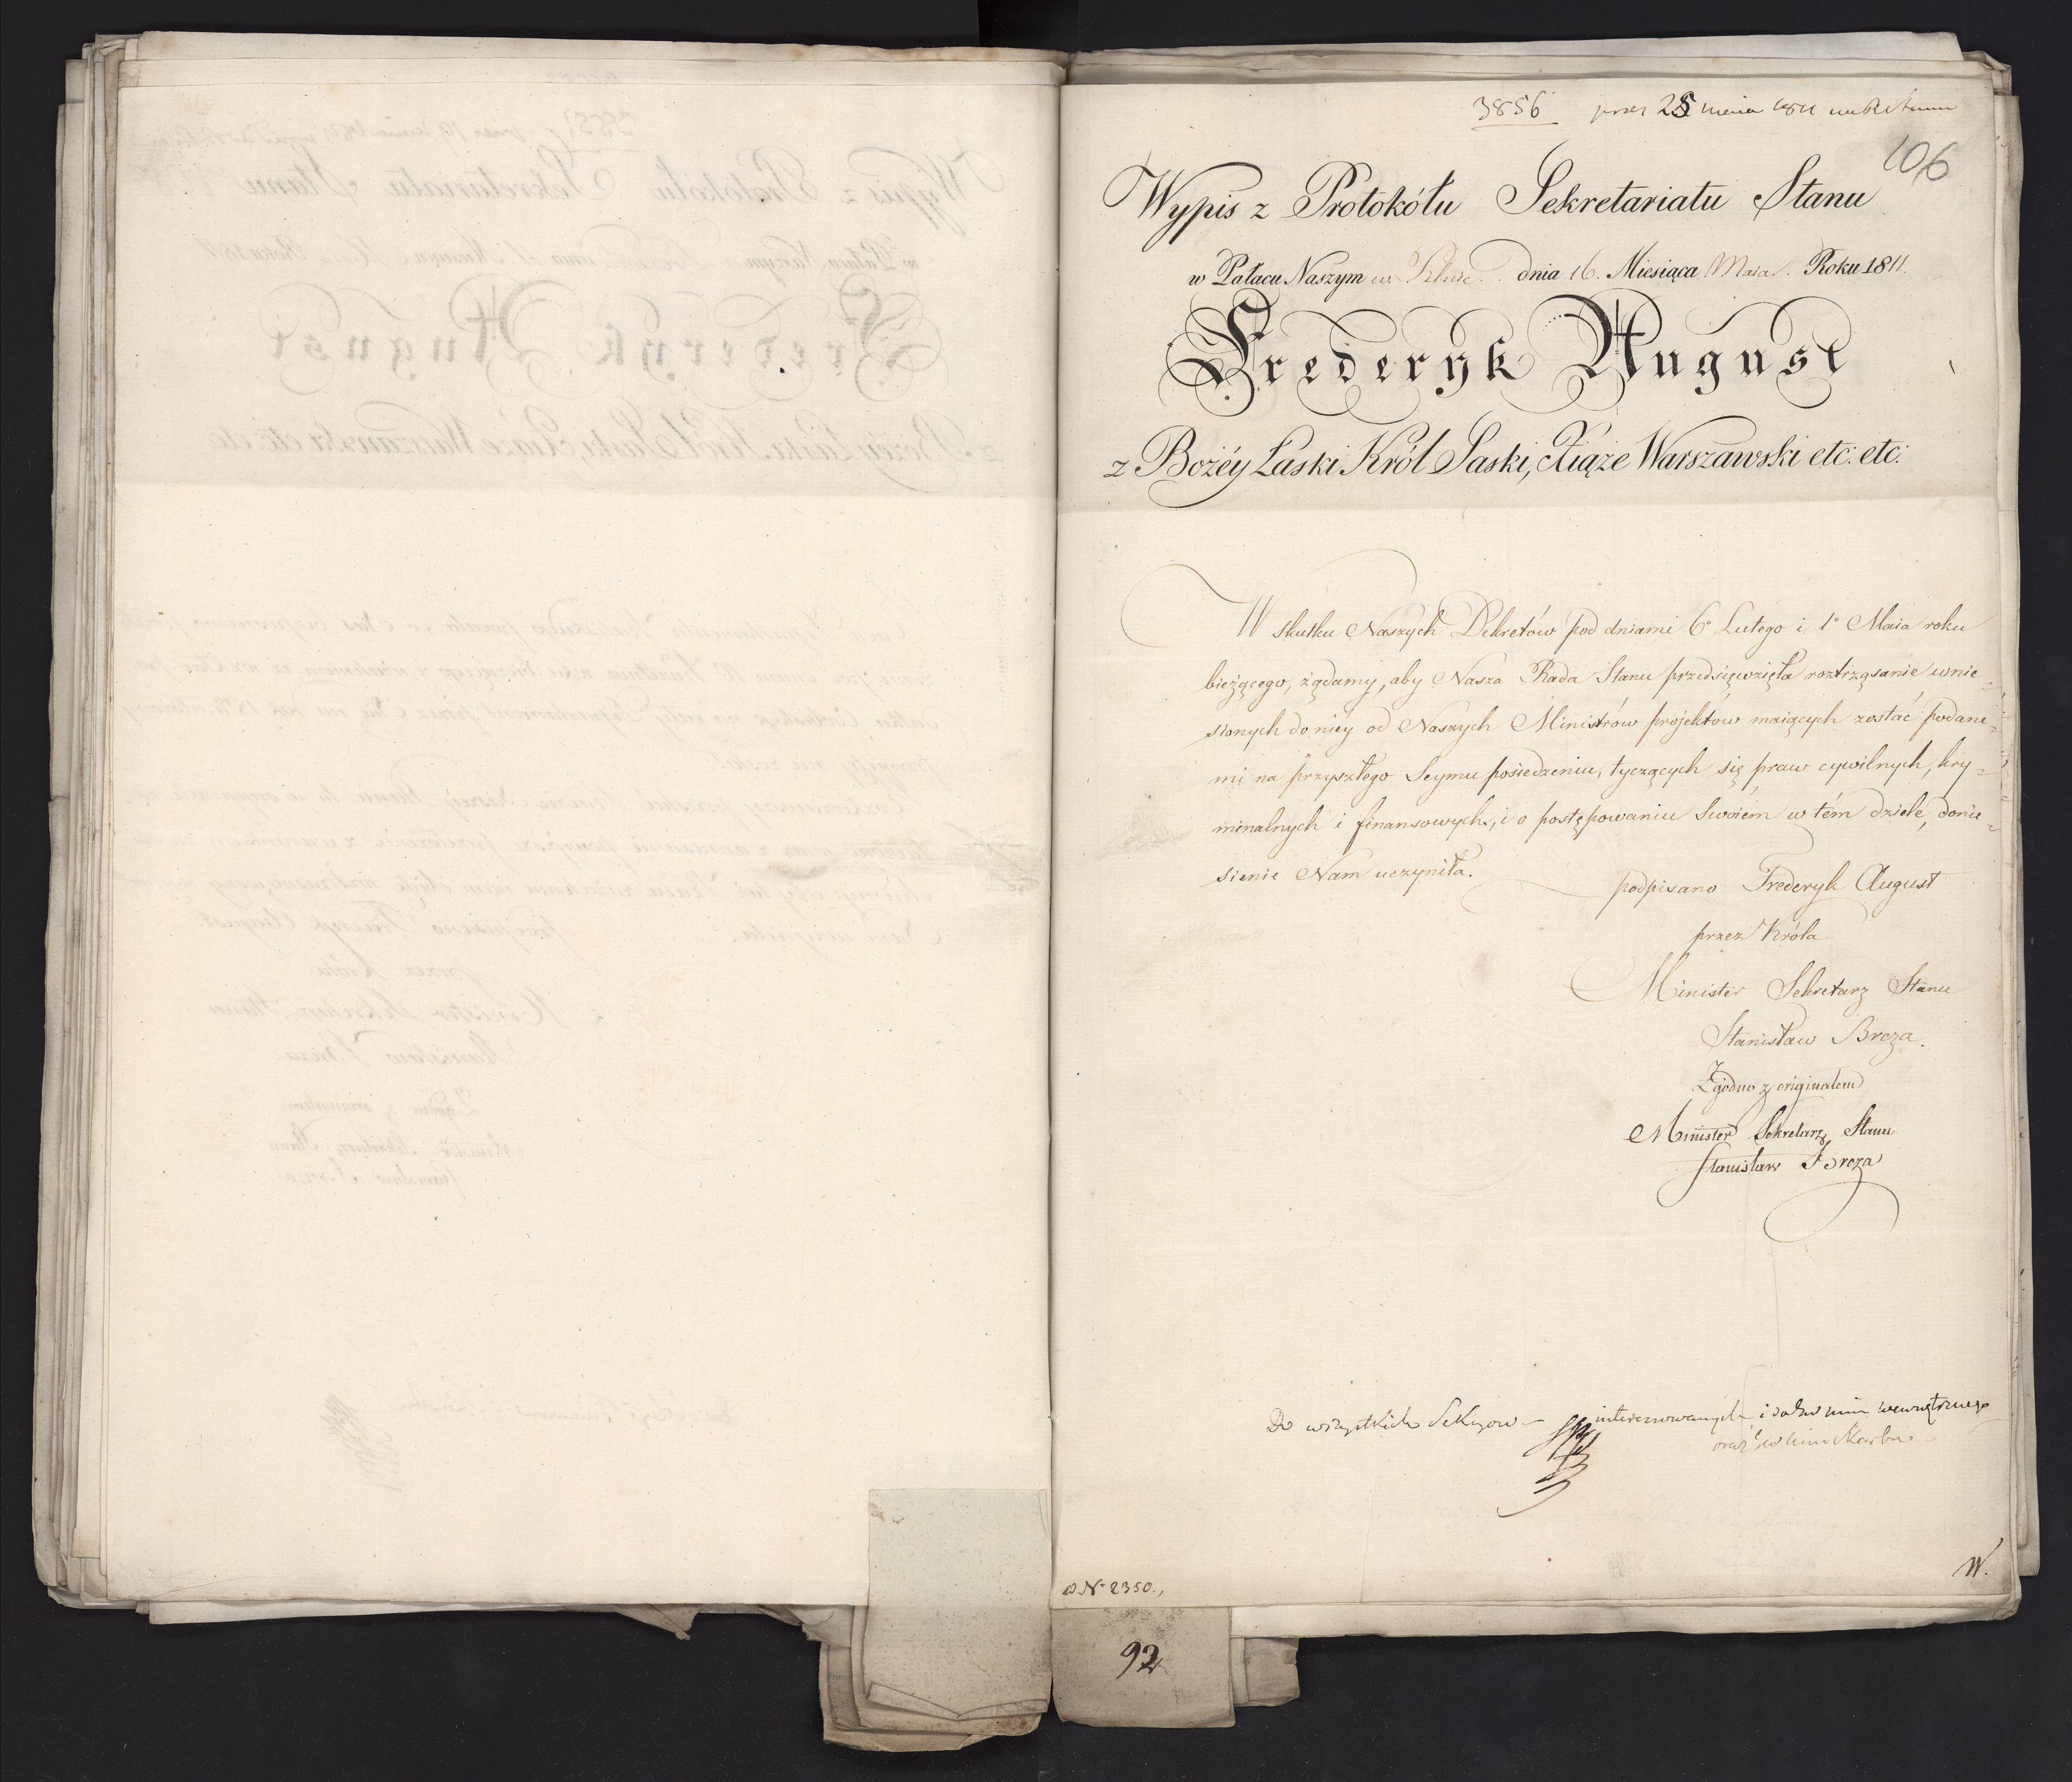 3856 25 1811
106
Wypis z Protokółu Sekretariatu Stanu
w Pałacu Naszym w dnia 16. Miesiąca Maia. Roku 1811.
Frederyk August
z Bożéy Łaski Król Saski, Xiąże Warszawski etc: etc:
W skutku Naszych Dekretów pod dniami 6° Lutego i 1° Maia roku
bieżącego, żądamy, aby Nasza Rada Stanu przedsięwzięła roztrząsanie wnie=
sionych do niey od Naszych Ministrów projektów maiących zostać podane=
mi na przyszłego Seymu posiedzeniu, tyczących się praw cywilnych, kry=
minalnych i finansowych, i o postępowaniu Swoiém w tém dziele, donie=
sienie Nam uczyniła.
podpisano Frederyk August
przez Króla
Minister Sekretarz Stanu
Stanisław Breza.
Zgodno z originałem
Minister Sekretarz Stanu
Stanisław Breza
Do wszystkich Sekcyow – interesowanych i wewnętrznego
oraz Skarbu
N° 2350.
W.
92